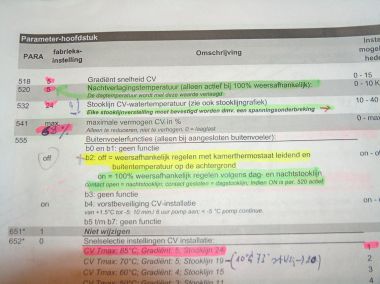 Parameter-hoofdstuk
PARA fabrieks-instelling Omschrijving Insta
mogel
518 5 Gradiënt snelheid CV 0 - 15
520 5 Nachtverlagingstemperatuur (alleen actief bij 100% weersafhankelijk): 0 - 10 K
De dagtemperatuur wordt met deze waarde verlaagd
532 24 Stooklijn CV-watertemperatuur (zie ook stooklijngrafiek) 10 - 40
Elke stooklijnverstelling moet bevestigd worden dmv. een spanningsonderbreking
541 max. maximale vermogen CV in % 0 - ma
Alleen te reduceren, niet te verhogen; 0 = laaglast
555 Buitenvoelerfuncties (alleen bij aangesloten buitenvoeler):
b0 en b1: geen functie
off b2: off = weersafhankelijk regelen met kamerthermostaat leidend en
buitentemperatuur op de achtergrond
on = 100% weersafhankelijk regelen volgens dag- en nachtstooklijn
contact open = nachtstooklijn; contact gesloten = dagstooklijn; Indien ON is par. 520 actief
b3: geen functie
on b4: vorstbeveiliging CV-installatie on - off
van +1.5°C tot -5: 10 min./ 6 uur pomp aan; < -5 °C pomp continue.
b5 t/m b7: geen functie
651* 1 Niet wijzigen
652* 0 Snelselectie instellingen CV installatie:
CV Tmax: 85°C; Gradiënt: 5; Stooklijn 24 1
CV Tmax: 70°C; Gradiënt: 5; Stooklijn 19 2
CV Tmax: 60°C; Gradiënt: 4; Stooklijn 15 3